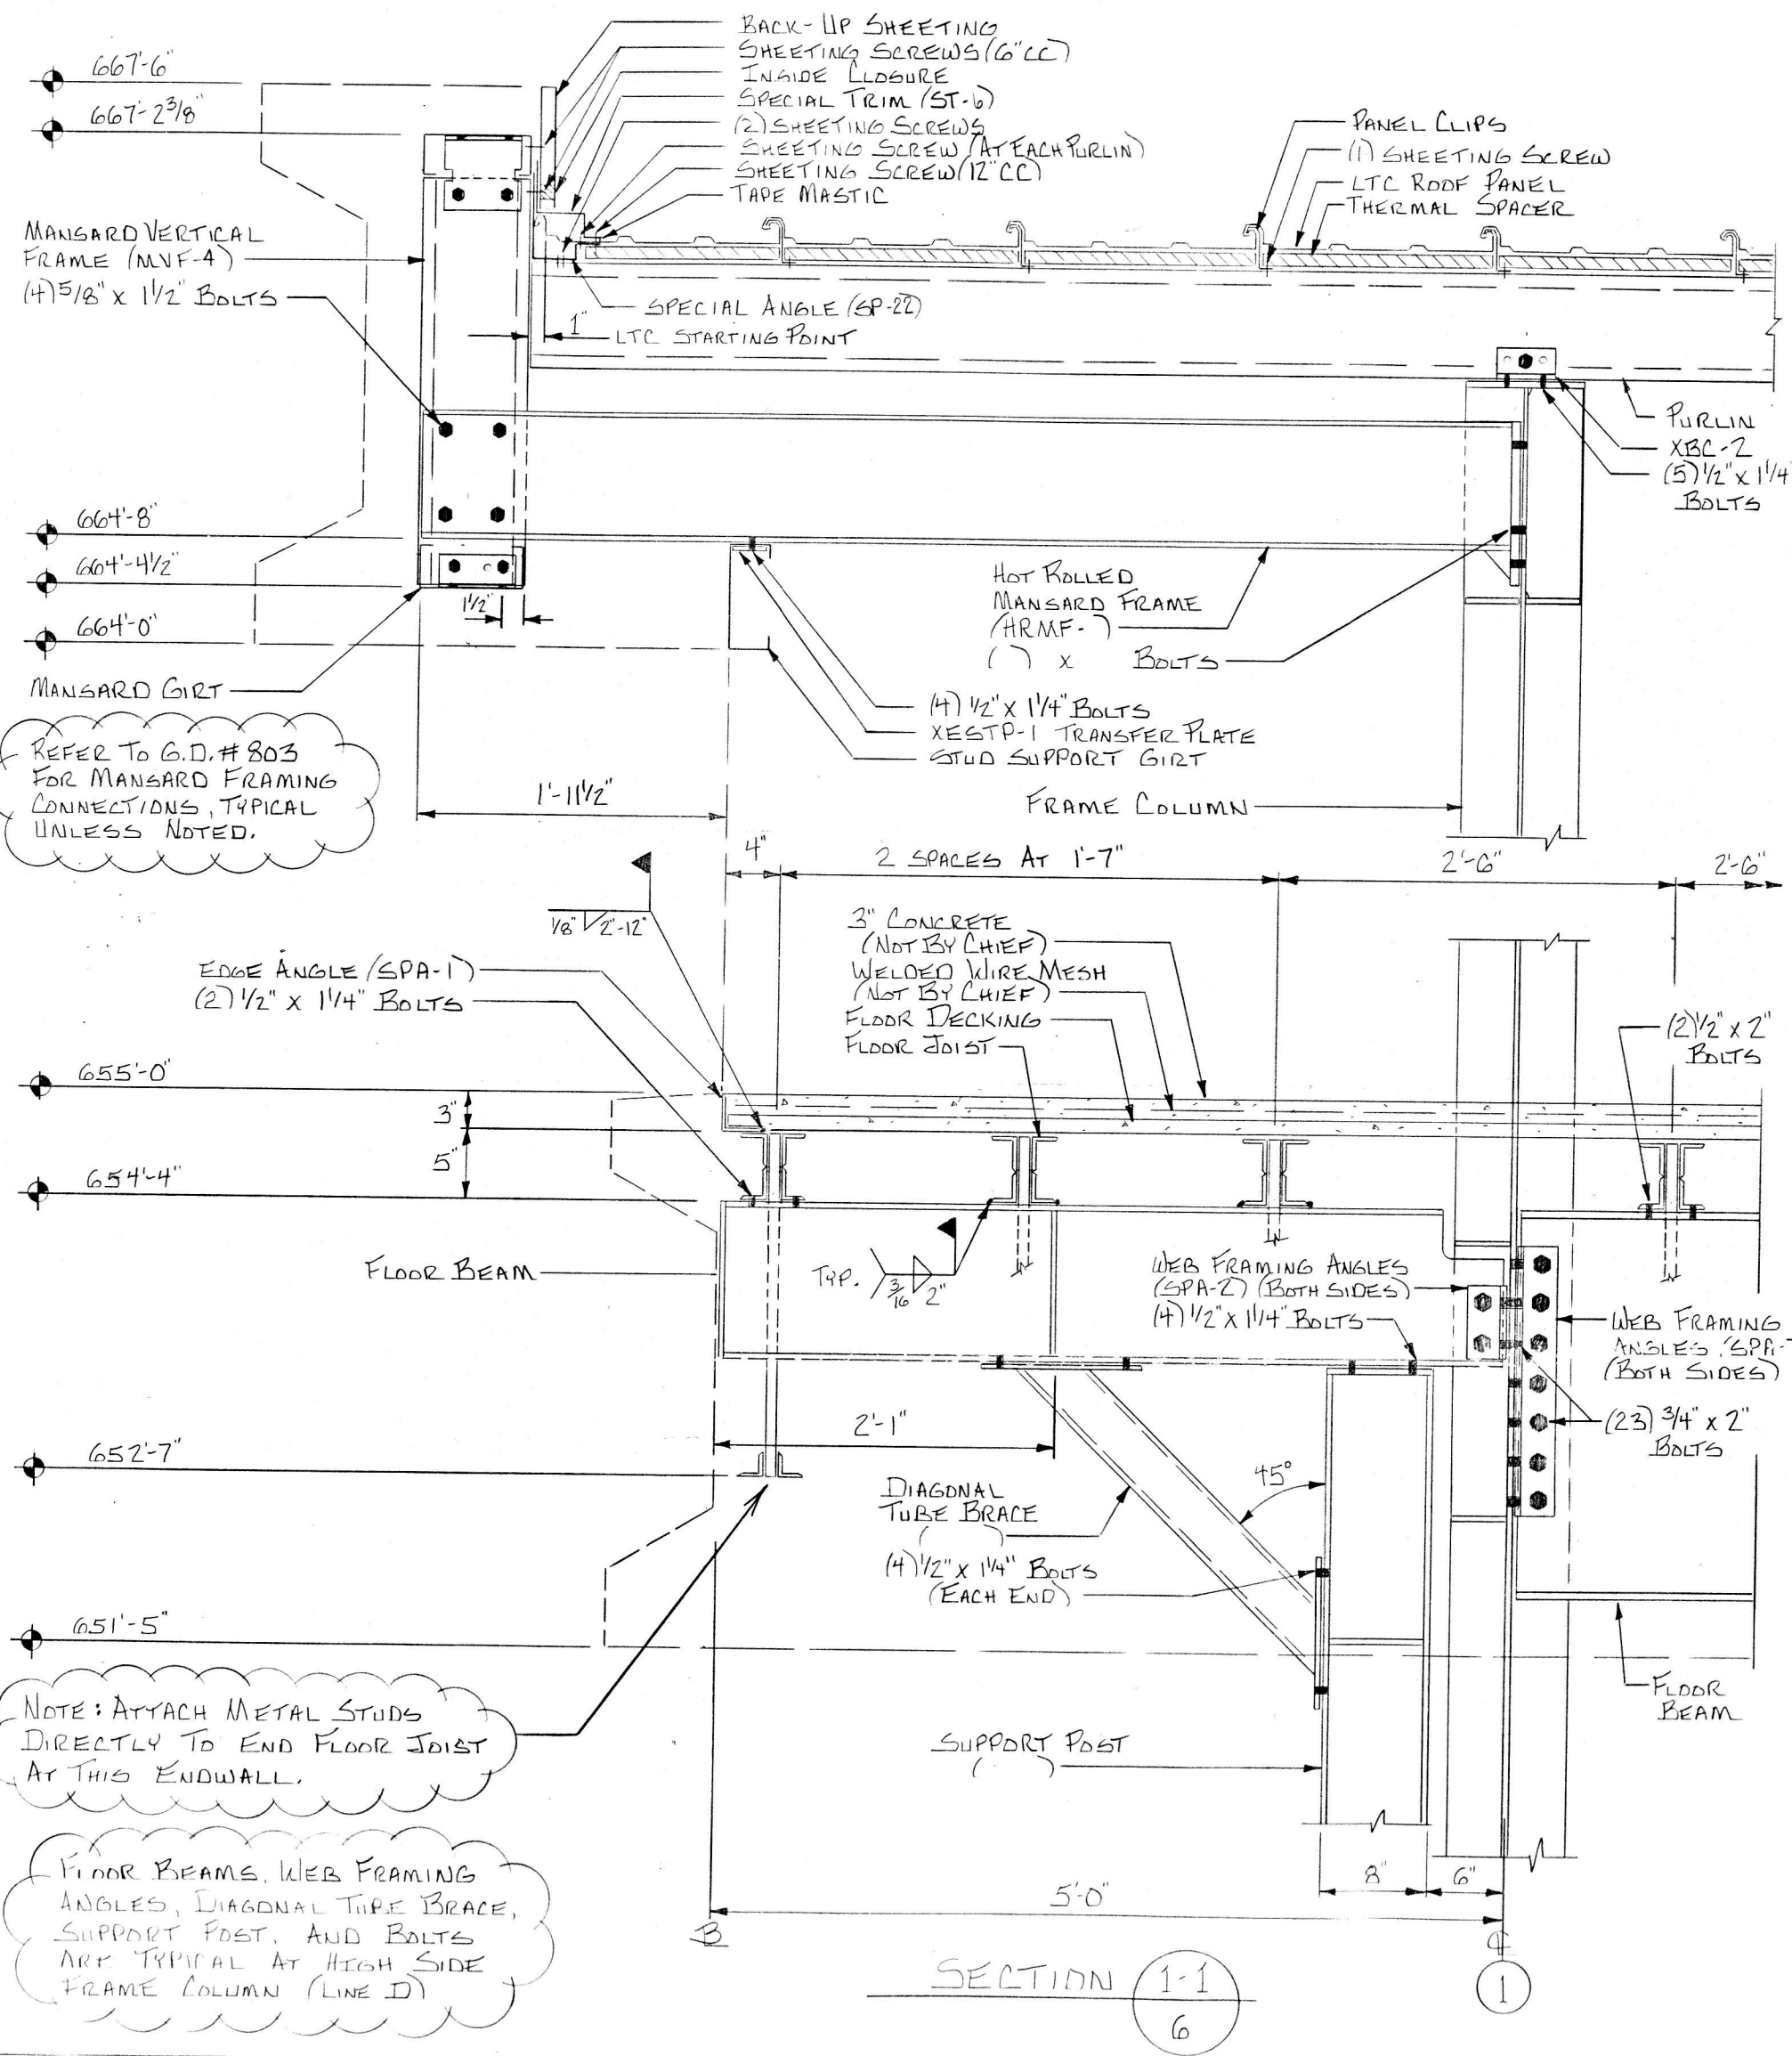 BACK-UP SHEETING
SHEETING SCREWS (6"CC)
INSIDE CLOSURE
SPECIAL TRIM (ST-6)
(2) SHEETING SCREWS
SHEETING SCREW (AT EACH PURLIN)
SHEETING SCREW (12"CC)
TAPE MASTIC
PANEL CLIPS
(1) SHEETING SCREW
LTC ROOF PANEL
THERMAL SPACER
667'-6"
667'-2 3/8"
MANSARD VERTICAL
FRAME (MVF-4)
(4) 5/8" x 1 1/2" BOLTS
SPECIAL ANGLE (SP-22)
1"
LTC STARTING POINT
PURLIN
XBC-2
(5) 1/2" x 1 1/4"
BOLTS
664'-8"
664'-4 1/2"
1 1/2"
664'-0"
MANSARD GIRT
HOT ROLLED
MANSARD FRAME
(HRMF- )
( ) x BOLTS
(4) 1/2" x 1 1/4" BOLTS
XESTP-1 TRANSFER PLATE
STUD SUPPORT GIRT
FRAME COLUMN
REFER TO G.D. # 803
FOR MANSARD FRAMING
CONNECTIONS, TYPICAL
UNLESS NOTED.
1'-11 1/2"
4"
2 SPACES AT 1'-7"
2'-6"
2'-6"
1/8" 2"-12"
3" CONCRETE
(NOT BY CHIEF)
WELDED WIRE MESH
(NOT BY CHIEF)
FLOOR DECKING
FLOOR JOIST
EDGE ANGLE (SPA-1)
(2) 1/2" x 1 1/4" BOLTS
(2) 1/2" x 2"
BOLTS
655'-0"
3"
5"
654'-4"
FLOOR BEAM
TYP. 3/16 2"
WEB FRAMING ANGLES
(SPA-2) (BOTH SIDES)
(4) 1/2" x 1 1/4" BOLTS
WEB FRAMING
ANGLES
(BOTH SIDES)
(23) 3/4" x 2"
BOLTS
2'-1"
652'-7"
45°
DIAGONAL
TUBE BRACE
( )
(4) 1/2" x 1 1/4" BOLTS
(EACH END)
651'-5"
NOTE: ATTACH METAL STUDS
DIRECTLY TO END FLOOR JOIST
AT THIS ENDWALL.
FLOOR
BEAM
SUPPORT POST
( )
FLOOR BEAMS, WEB FRAMING
ANGLES, DIAGONAL TUBE BRACE,
SUPPORT POST, AND BOLTS
ARE TYPICAL AT HIGH SIDE
FRAME COLUMN (LINE D)
8"
6"
5'-0"
SECTION 1-1
6
1